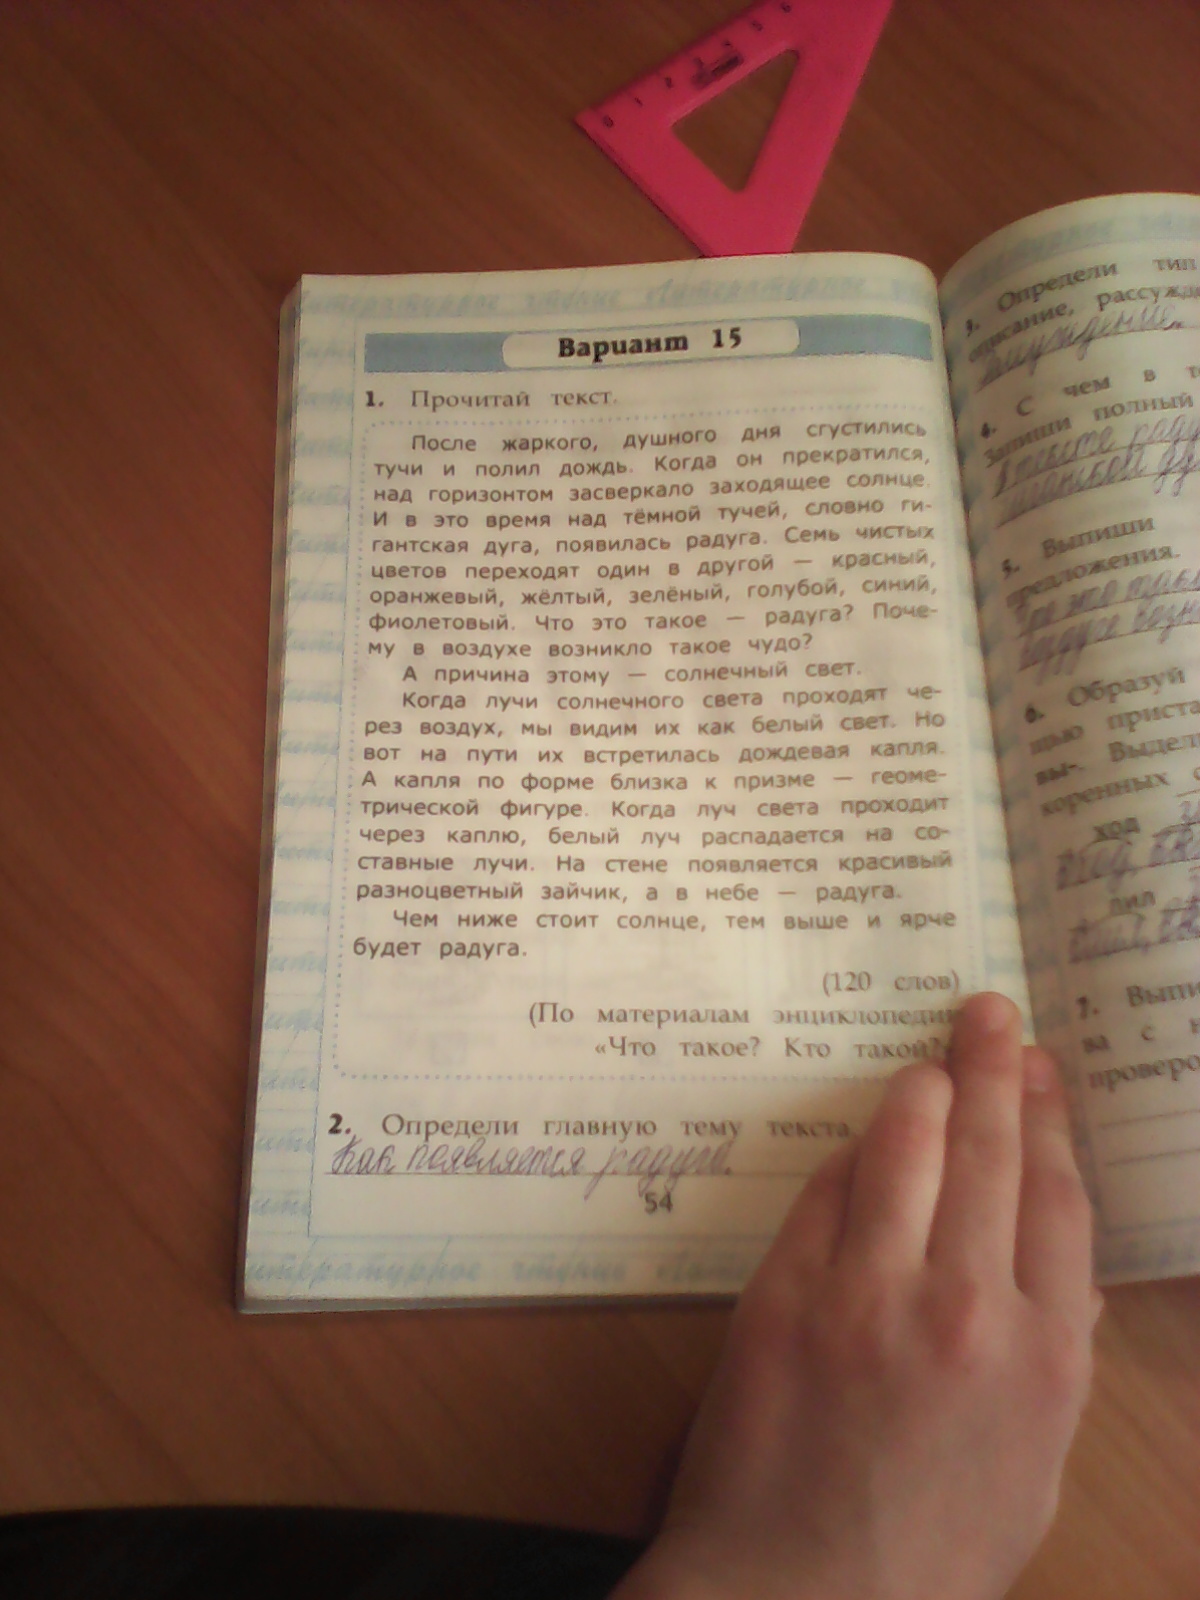 Вариант 15
1. Прочитай текст.
После жаркого, душного дня сгустились
тучи и полил дождь. Когда он прекратился,
над горизонтом засверкало заходящее солнце.
И в это время над тёмной тучей, словно ги-
гантская дуга, появилась радуга. Семь чистых
цветов переходят один в другой — красный,
оранжевый, жёлтый, зелёный, голубой, синий,
фиолетовый. Что это такое — радуга? Поче-
му в воздухе возникло такое чудо?
А причина этому — солнечный свет.
Когда лучи солнечного света проходят че-
рез воздух, мы видим их как белый свет. Но
вот на пути их встретилась дождевая капля.
А капля по форме близка к призме — геоме-
трической фигуре. Когда луч света проходит
через каплю, белый луч распадается на со-
ставные лучи. На стене появляется красивый
разноцветный зайчик, а в небе — радуга.
Чем ниже стоит солнце, тем выше и ярче
будет радуга.
(120 слов)
(По материалам энциклопедии
«Что такое? Кто такой?»
2. Определи главную тему текста.
Как появляется радуга.
54
литературное чтение
3. Определи тип
описание,
4. С чем в
Запиши полный
5. Выпиши
предложения.
6. Образуй
вы-.
коренных
ход
пил
7.
ва с
0 1 2 3 4 5 6